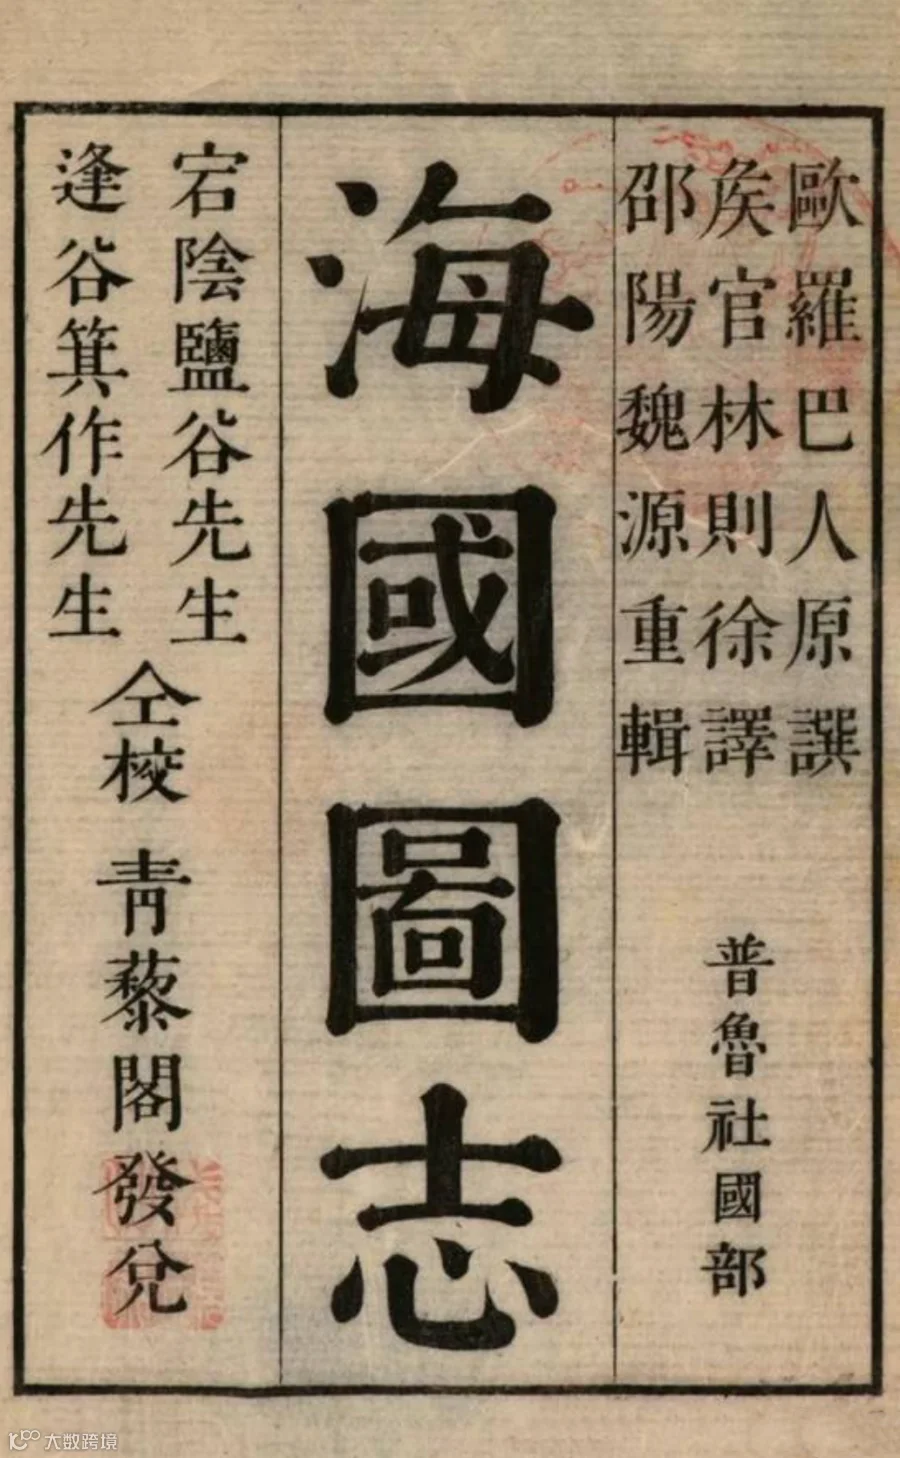 歐羅巴人原譔
矦官林則徐譯
邵陽魏源重輯
普魯社國部
海國圖志
宕陰鹽谷先生
逢谷箕作先生
仝校
青藜閣發兌
大数跨境